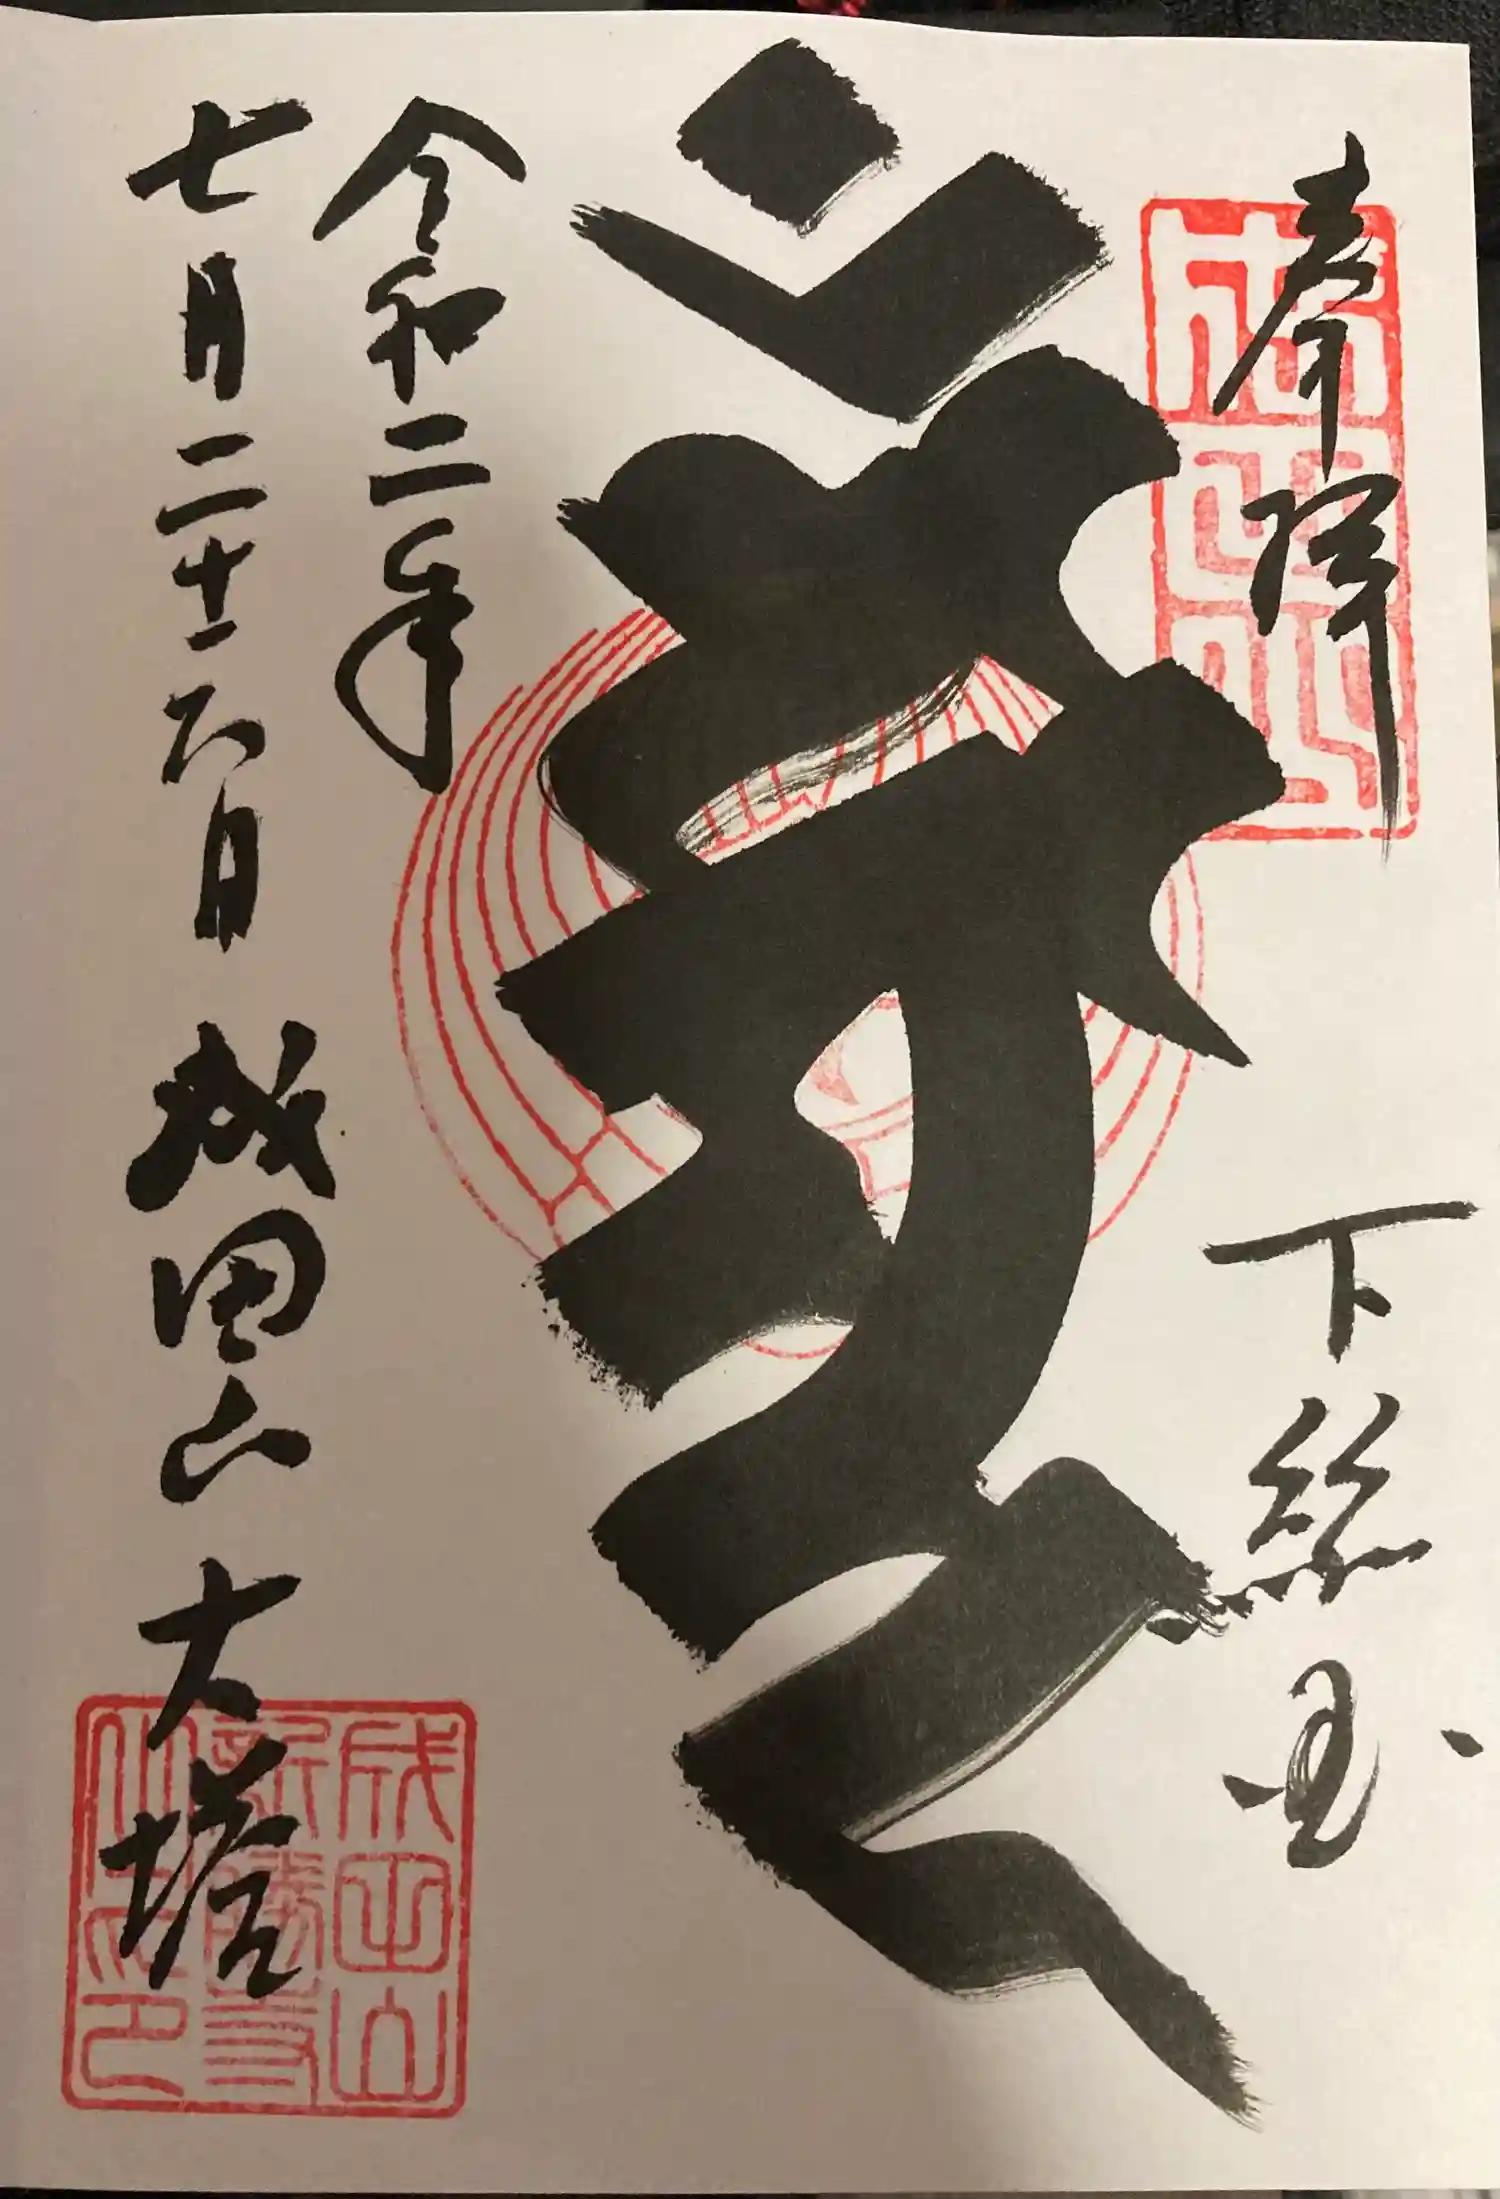 奉拝
下総国
成田山
令和二年
七月二十六日 成田山 大塔
成田山
新勝寺